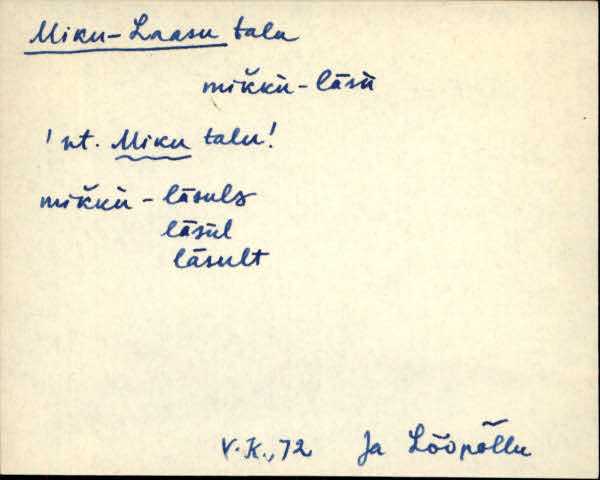 Miku-Laasu talu
mik̆kù-lāsù
! vt. Miku talu!
mik̆kù-lāsulɜ
lāsùl
lāsult
V.K., 72 Ja Lõõpõllu